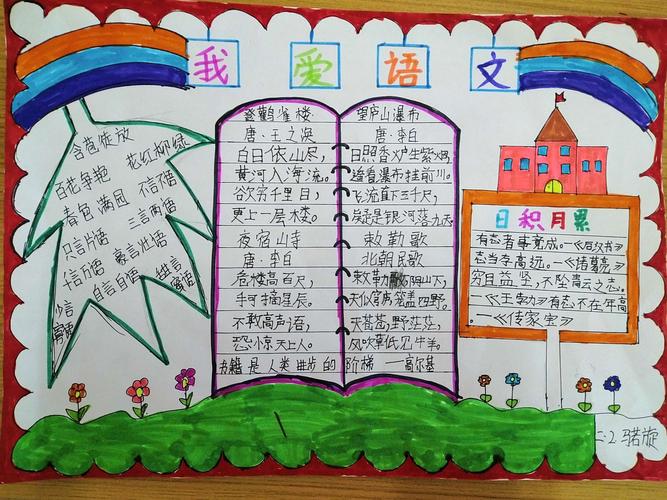 我爱语文
含苞待放
花红柳绿
百花争艳
春色满园
不言不语
三言两语
只言片语
千言万语
豪言壮语
自言自语
登鹳雀楼
唐·王之涣
白日依山尽，
黄河入海流。
欲穷千里目，
更上一层楼。
夜宿山寺
唐·李白
危楼高百尺，
手可摘星辰。
不敢高声语，
恐惊天上人。
望庐山瀑布
唐·李白
日照香炉生紫烟，
遥看瀑布挂前川。
飞流直下三千尺，
疑是银河落九天。
敕勒歌
北朝民歌
敕勒川阴山下，
天似穹庐笼盖四野。
天苍苍，野茫茫，
风吹草低见牛羊。
书籍是人类进步的阶梯 —高尔基
日积月累
有志者事竟成。—《后汉书》
志当存高远。—《诸葛亮》
穷且益坚，不坠青云之志。
—《王勃》有志不在年高
—《传家宝》
二.2 骆旋